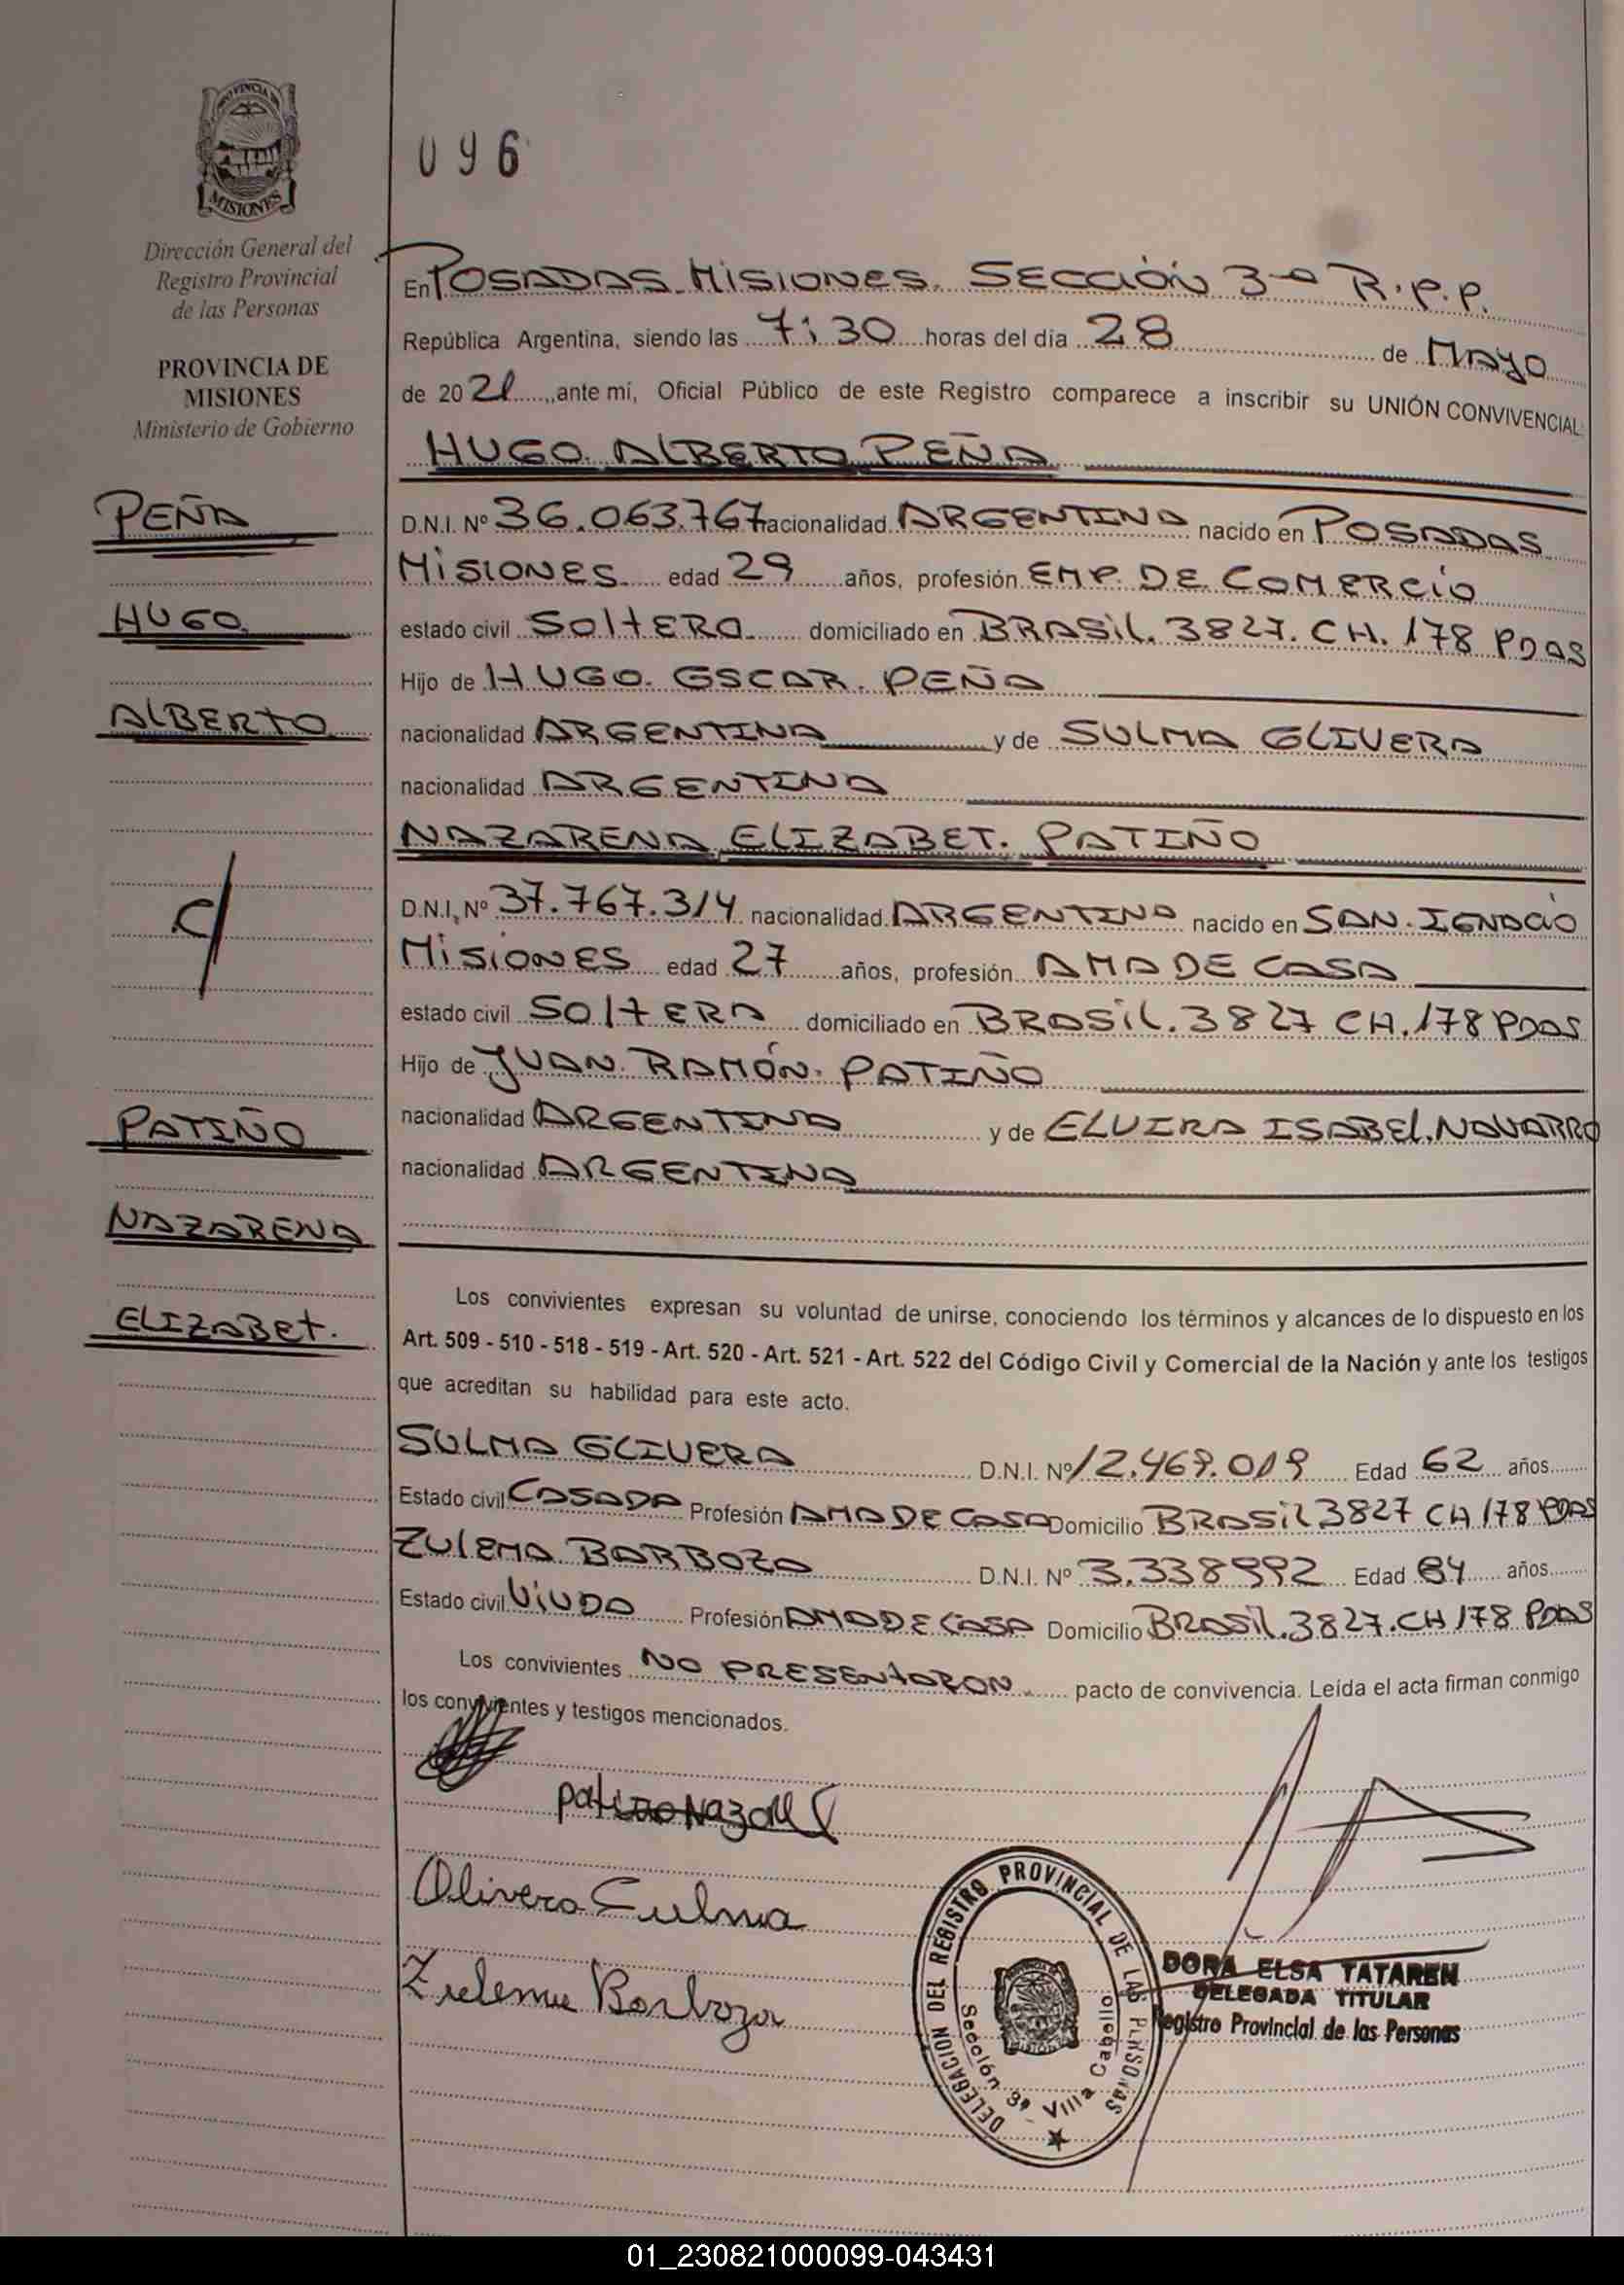 PROVINCIA DE
MISIONES
Dirección General del
Registro Provincial
de las Personas
PROVINCIA DE
MISIONES
Ministerio de Gobierno
PEÑA
HUGO
ALBERTO
C/
PATIÑO
NAZARENA
ELIZABET.
096
En POSADAS MISIONES. SECCIÓN 3ª R.P.P.
República Argentina, siendo las 7:30 horas del día 28 de MAYO
de 2021, ante mí, Oficial Público de este Registro comparece a inscribir su UNIÓN CONVIVENCIAL:
HUGO ALBERTO PEÑA
D.N.I. Nº 36.063.767 nacionalidad ARGENTINA nacido en POSADAS
MISIONES edad 29 años, profesión EMP. DE COMERCIO
estado civil SOLTERO domiciliado en BRASIL. 3827. CH. 178 PDAS
Hijo de HUGO OSCAR PEÑA
nacionalidad ARGENTINA y de SULMA OLIVERA
nacionalidad ARGENTINA
NAZARENA ELIZABET. PATIÑO
D.N.I. Nº 37.767.314 nacionalidad ARGENTINA nacido en SAN IGNACIO
MISIONES edad 27 años, profesión AMA DE CASA
estado civil SOLTERA domiciliado en BRASIL. 3827 CH. 178 PDAS
Hijo de JUAN RAMÓN PATIÑO
nacionalidad ARGENTINA y de ELVIRA ISABEL NAVARRO
nacionalidad ARGENTINA
Los convivientes expresan su voluntad de unirse, conociendo los términos y alcances de lo dispuesto en los
Art. 509 - 510 - 518 - 519 - Art. 520 - Art. 521 - Art. 522 del Código Civil y Comercial de la Nación y ante los testigos
que acreditan su habilidad para este acto.
SULMA OLIVERA D.N.I. Nº 12.469.019 Edad 62 años
Estado civil CASADA Profesión AMA DE CASA Domicilio BRASIL 3827 CH 178 PDAS
ZULEMA BARBOZA D.N.I. Nº 3.338992 Edad 84 años
Estado civil VIUDA Profesión AMA DE CASA Domicilio BRASIL. 3827. CH 178 PDAS
Los convivientes NO PRESENTARON pacto de convivencia. Leída el acta firman conmigo
los convivientes y testigos mencionados.
Olivera Sulma
Zulema Barboza
DELEGACION DEL REGISTRO PROVINCIAL DE LAS PERSONAS
Sección 3ª Villa Cabello
DORA ELSA TATAREN
DELEGADA TITULAR
Registro Provincial de las Personas
01_230821000099-043431